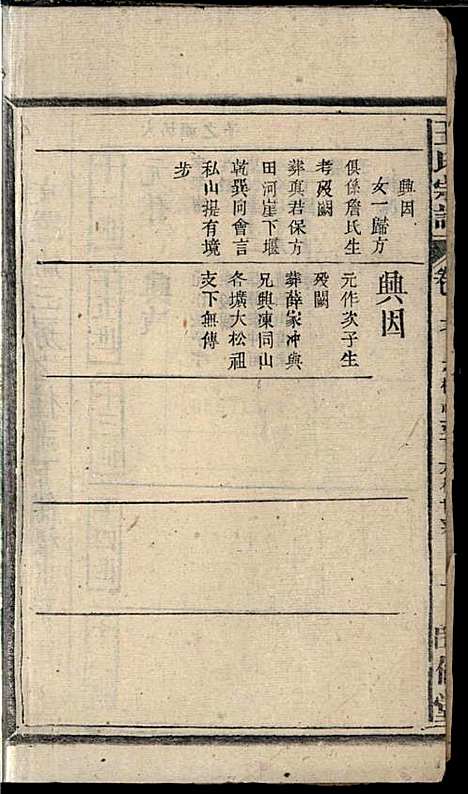 王氏宗譜
興因
女一歸方
俱係詹氏生
考殁闕
葬真君保方
田河崖下堰
乾巽向會言
私山堤有境
步
興因
元作次子生
殁闕
葬薛家冲與
兄興凍同山
各壙大松祖
支下無傳